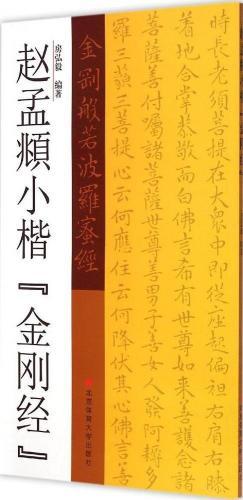 赵孟頫小楷『金刚经』
房弘毅 编著
金剛般若波羅蜜經
時長老須菩提在大衆中即從座起偏袒右肩右膝
著地合掌恭敬而白佛言希有世尊如来善護念諸
菩薩善付囑諸菩薩世尊善男子善女人發阿耨多
羅三藐三菩提心云何應住云何降伏其心
北京体育大学出版社